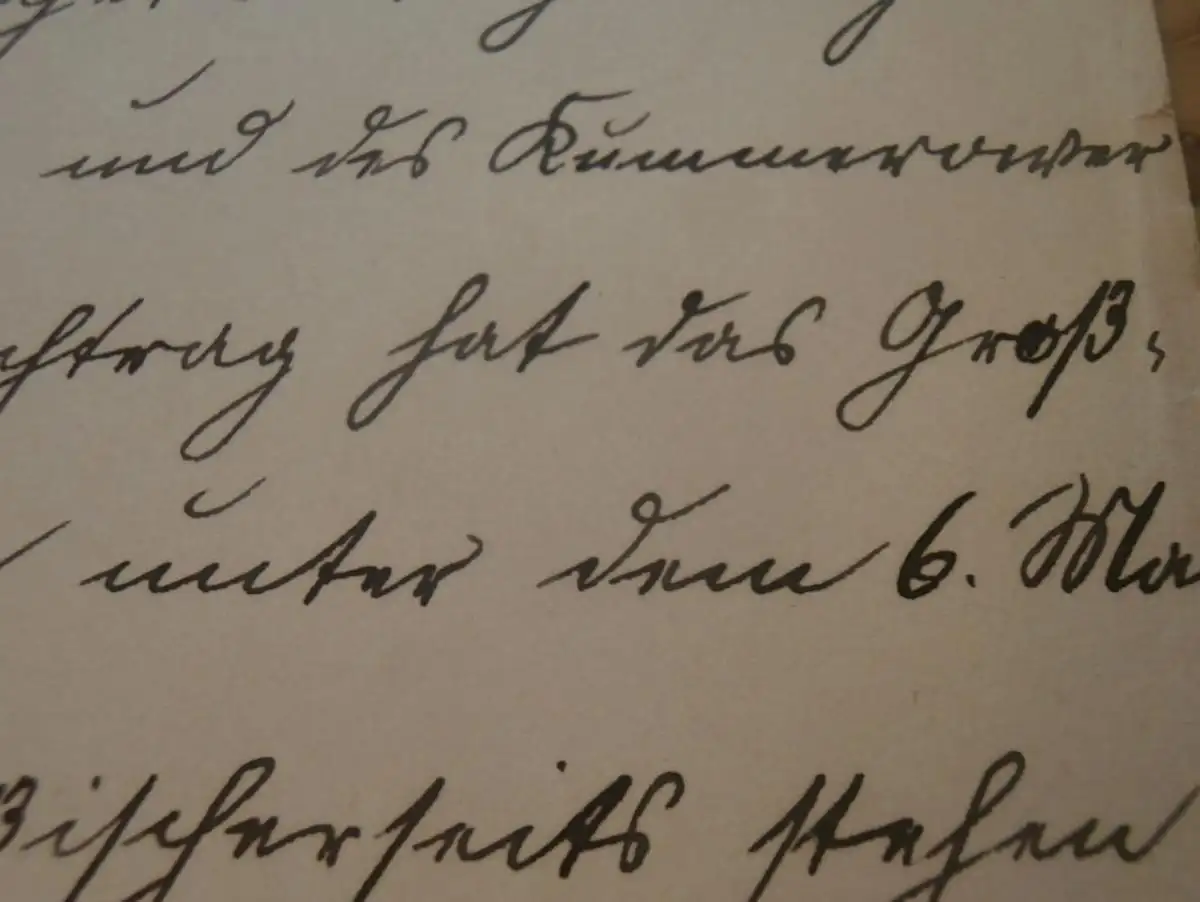 und des Kummerower
chtrag hat das Groß-
unter dem 6. Ma
ßischerseits stehen